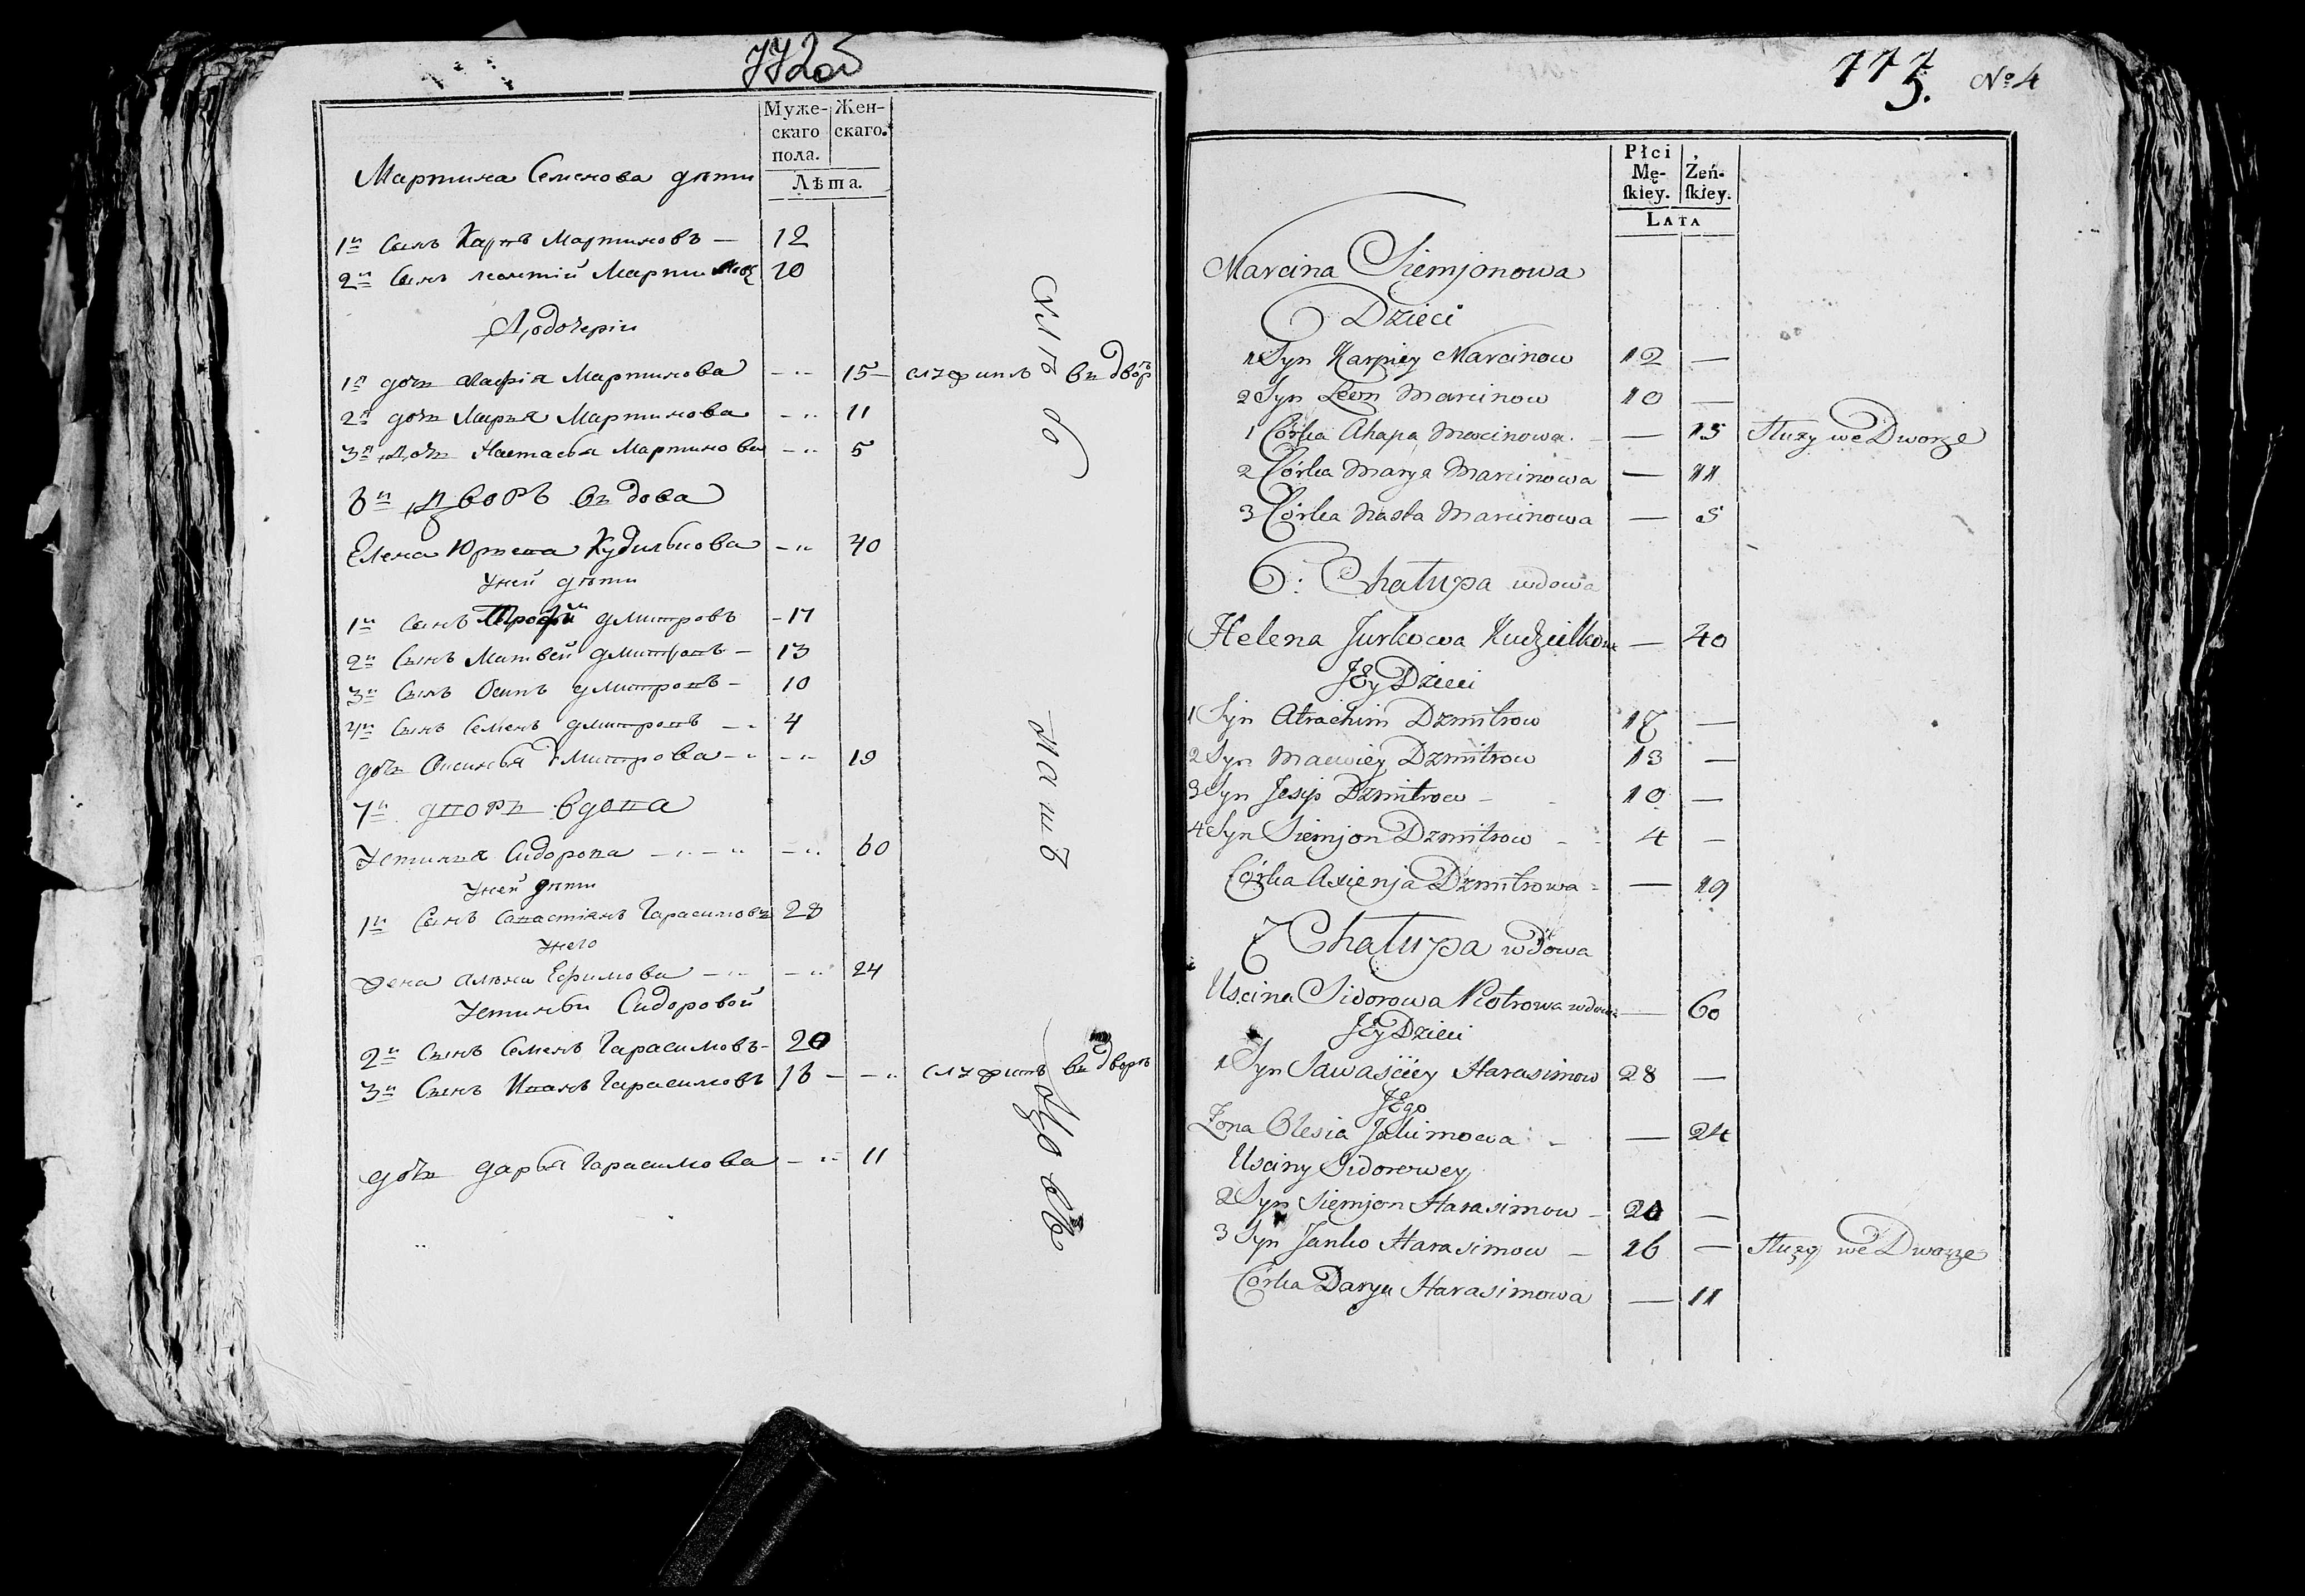 Муже-
скаго
пола.
Жен-
скаго.
Лѣта.
Мартина Семенова дѣти
1й Сынъ Карпъ Мартиновъ — 12
2й Сынъ Леонтій 10
дочерiи
1я дочь Агафія Мартинова — 15 — служитъ въ дворѣ
2я дочь Марья Мартинова — 11
3я дочь Настасья Мартинова — 5
6й дворъ вдова
Елена Юрьева — 40
У ней дѣти
1й Сынъ дмитровъ — 17
2й Сынъ Матвей дмитровъ — 13
3й Сынъ Осипъ дмитровъ — 10
4й Сынъ Семенъ дмитровъ — 4
дочь Дмитрова — 19
7й дворъ вдова
Устинья Сидорова — 60
У ней дѣти
1й Сынъ Савастіянъ Гарасимовъ 28
У него
Жена Алена Ефимова — 24
Устиньи Сидоровой
2й Сынъ Семенъ Гарасимовъ — 20
3й Сынъ Иванъ Гарасимовъ 16 — служитъ въ дворѣ
дочь дарья Гарасимова — 11
№ 4
Płci
Mę-
skiey.
Żeń-
skiey.
LATA
Marcina Siemjonowa
Dzieci
1 Syn Karpiey Marcinow 12 —
2 Syn Leon Marcinow 10 —
1 Córka Ahapa Marcinowa — 15 Służy we Dworze
2 Córka Marya Marcinowa — 11
3 Córka Nasta Marcinowa — 5
6: Chałupa wdowa
Helena Jurkowa — 40
JEy Dzieci
1 Syn Atrachim Dzmitrow 17 —
2 Syn Maciey Dzmitrow 13 —
3 Syn Jesip Dzmitrow 10 —
4 Syn Siemjon Dzmitrow 4 —
Córka Axienja Dzmitrowa — 19
7 Chałupa wdowa
Uscina Sidorowa Piotrowa wdowa — 60
JEy Dzieci
1 Syn Sawaściey Harasimow 28 —
JEgo
Żona Olesia Jakimowa — 24
Usciny Sidorowey
2 Syn Siemjon Harasimow 20 —
3 Syn Janko Harasimow 16 — Służy we Dworze
Córka Darya Harasimowa — 11